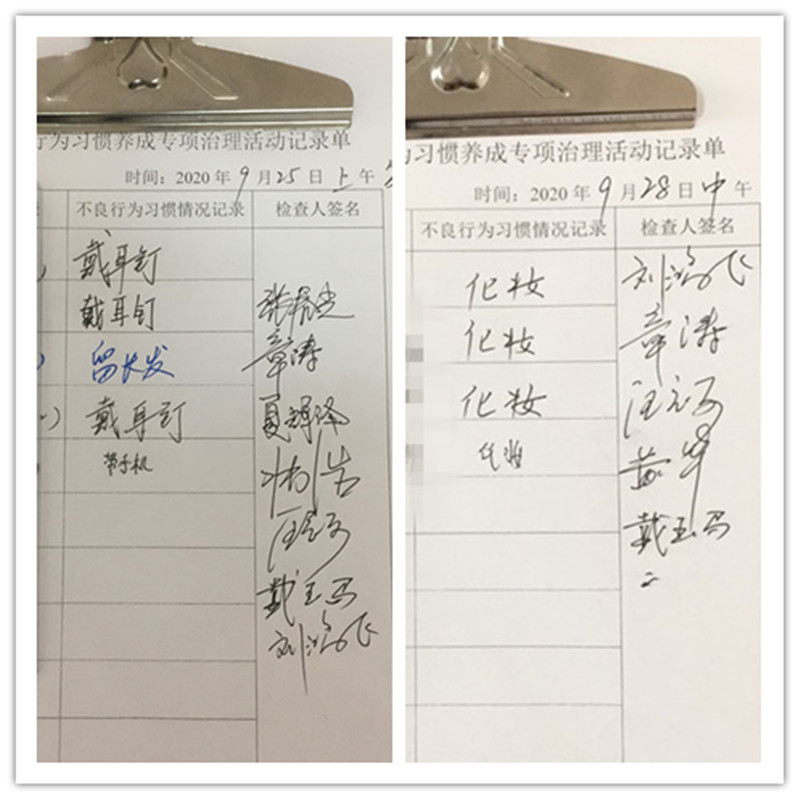 行为习惯养成专项治理活动记录单
时间：2020年9月25日上午
不良行为习惯情况记录 检查人签名
戴耳钉
戴耳钉
留长发
章涛
戴耳钉
带手机
戴玉马
刘鸿飞
为习惯养成专项治理活动记录单
时间：2020年9月28日中午
不良行为习惯情况记录 检查人签名
化妆 刘鸿飞
化妆 章涛
化妆
化妆
戴玉马